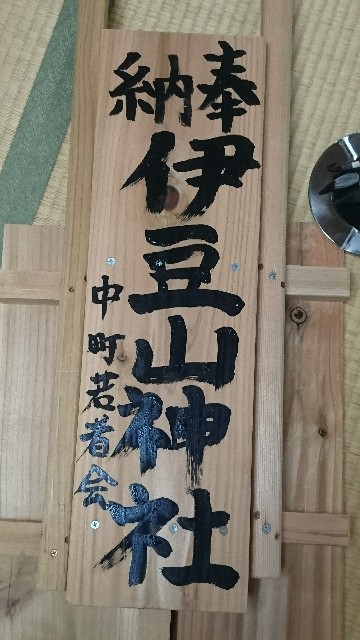 奉納
伊豆山神社
中町若者会